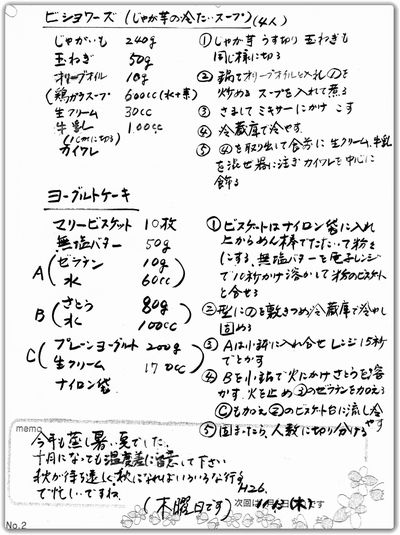 ビショワーズ(じゃが芋の冷たいスープ)(4人)
じゃがいも 240g
玉ねぎ 50g
オリーブオイル 10g
(鶏ガラスープ 600cc(水+素)
生クリーム 30cc
牛乳 100cc
カイワレ
①じゃが芋うす切り 玉ねぎも
同じ様に切る
②鍋でオリーブオイルを入れ①を
炒める スープを入れて煮る
③さましてミキサーにかけ こす
④冷蔵庫で冷やす
⑤④を取り出して食前に生クリーム、牛乳
を混ぜ器に注ぎカイワレを中心に
飾る
ヨーグルトケーキ
マリービスケット 10枚
無塩バター 50g
A(ゼラチン 10g
水 60cc)
B(さとう 80g
水 100cc)
C(プレーンヨーグルト 200g
生クリーム 170cc)
ナイロン袋
①ビスケットはナイロン袋に入れ
上からめん棒でたたいて粉を
にする、無塩バターを電子レンジ
で10秒かけ溶かして粉のビスケット
と合せる
②型に①を敷きつめ冷蔵庫で冷やし
固める
③Aは小鉢に入れ合せレンジ15秒
でとかす
④Bを小鍋で火にかけさとうを溶
かす、火を止め③のゼラチンを加える
Cも加え②のビスケット台に流し冷やす
⑤固まったら、人数に切り分ける
memo
今年も蒸し暑い夏でした。
十月になっても温度差に留意して下さい
秋が待ち遠しく秋になればいろいろな行事
で忙しいですね。
H26.
(木曜日です)
次回は 月 日(木)です
No.2